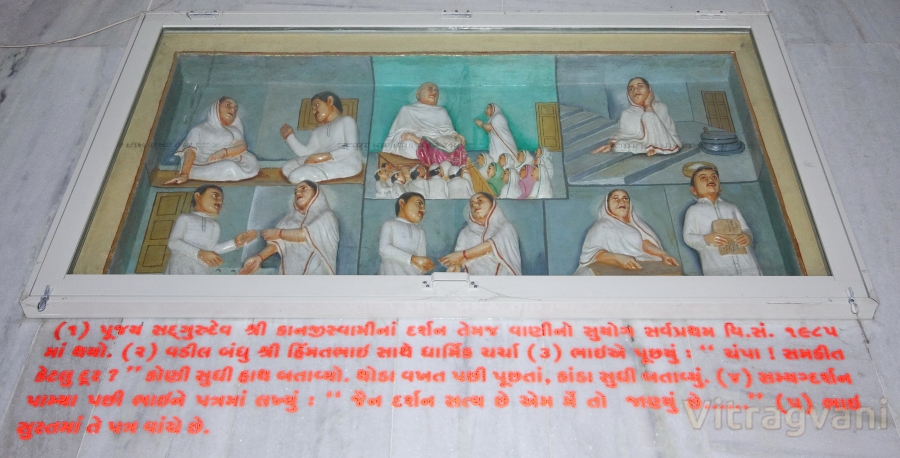 (૧) પૂજ્ય સદ્‌ગુરુદેવ શ્રી કાનજીસ્વામીનાં દર્શન તેમજ વાણીનો સુયોગ સર્વપ્રથમ વિ.સં. ૧૯૮૫
માં થયો. (૨) વડીલ બંધુ શ્રી હિંમતભાઈ સાથે ધાર્મિક ચર્ચા (૩) ભાઈએ પૂછયું : “ ચંપા ! સમકીત
કેટલુ દૂર ? ” કોણી સુધી હાથ બતાવ્યો. થોડા વખત પછી પૂછતાં, કાંડા સુધી બતાવ્યું. (૪) સમ્યગ્દર્શન
પામ્યા પછી ભાઈને પત્રમાં લખ્યું : “ જૈન દર્શન સત્ય છે એમ મેં તો જાણ્યું છે ” (૫) ભાઈ
સુરતમાં તે પત્ર વાંચે છે.
Vitragvani